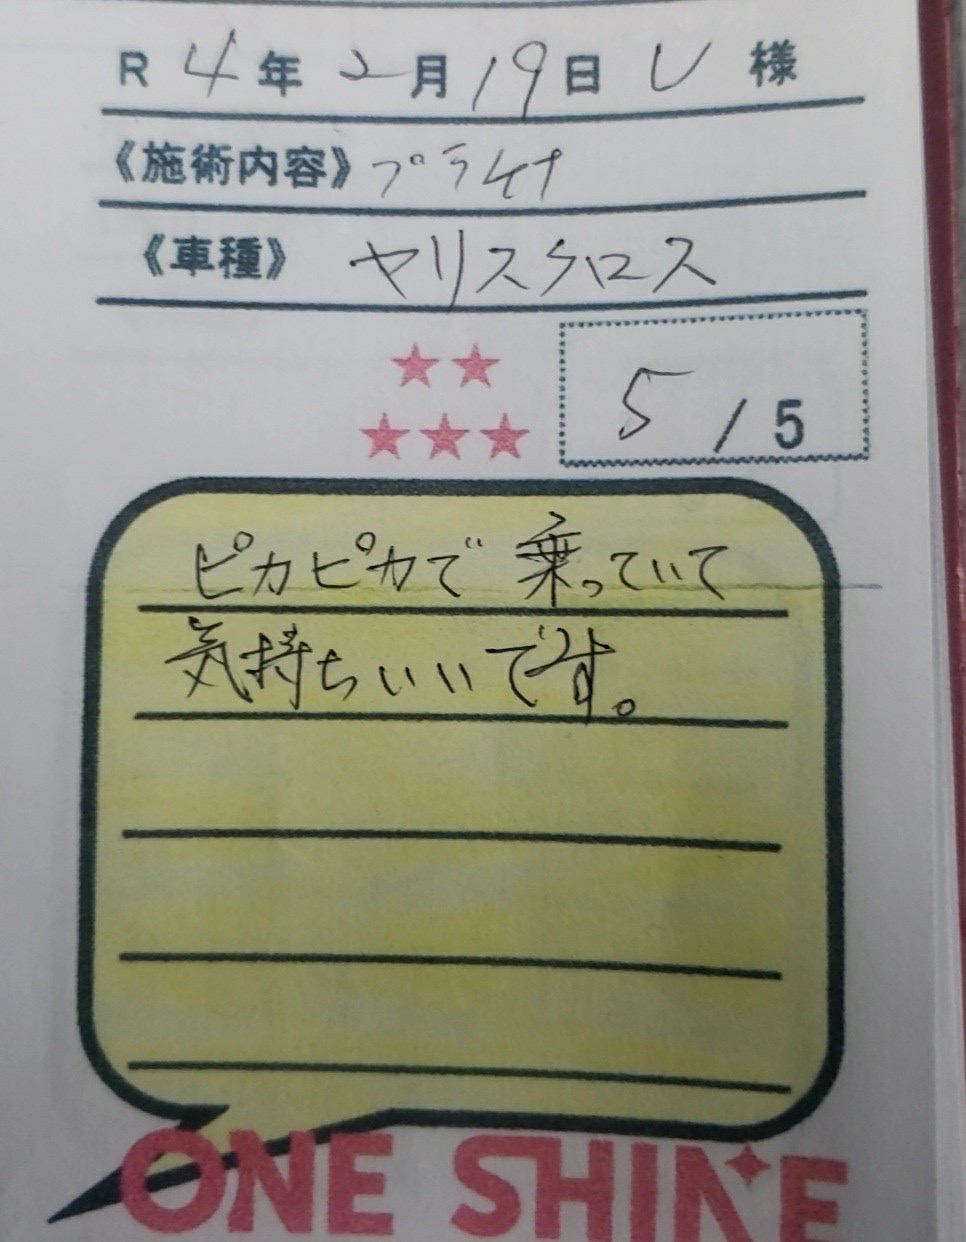 R 4年 2月 19日 U 様
《施術内容》プラセナ
《車種》 ヤリスクロス
★★
★★★ 5 / 5
ピカピカで 乗っていて
気持ちいいです。
ONE SHINE